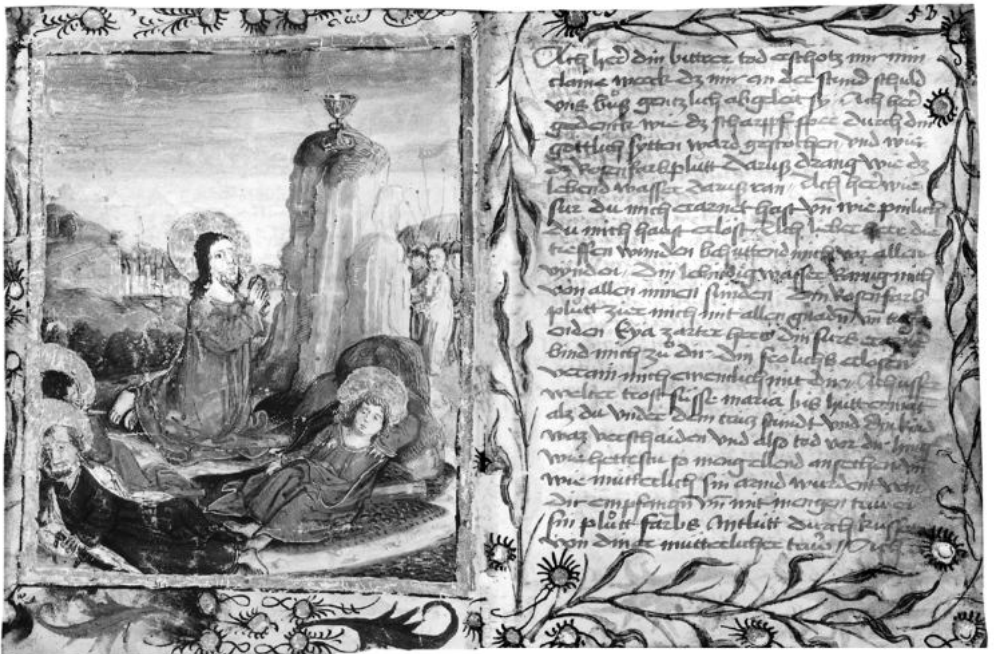 53
Ach herr din bittrer tod erscholtz mir min
claine werck dz mir an der stund schuld
vnd buß gentzlich abgeleit sy Ach herr
gedenck wie dz scharpff sper durch din
göttlich sytten ward gestochen vnd wie
dz Rosenfarb plůtt daruß drang wie dz
lebend wasser daruß ran Ach herr wie
sur du mich erarnet hast vn̄ wie pinlich
du mich haust erlöst Ach lieber herr die
tieffen wunden behůttend mich vor allen
vynden Din lebindig wasser Rainig mich
von allen minen sünden Din Rosenfarb
plůtt zier mich mit allen gnadn vn̄
Eya zarter herr din
bind mich zů dir din
verain mich ewenklich mit dir Ach
welter trost süsse maria bis
alz du vnder dem crütz stündt vnd din kind
waz verschaiden vnd also tod vor dir hieng
wie hettestu so meng ellend ansechen vn̄
wie mütterlich sin armd wurdent von
dir empfangen vn̄ mit mengen trüwen
sin plůtt farbs Antlütt durch küsset
von diner mütterlicher trüw Ach